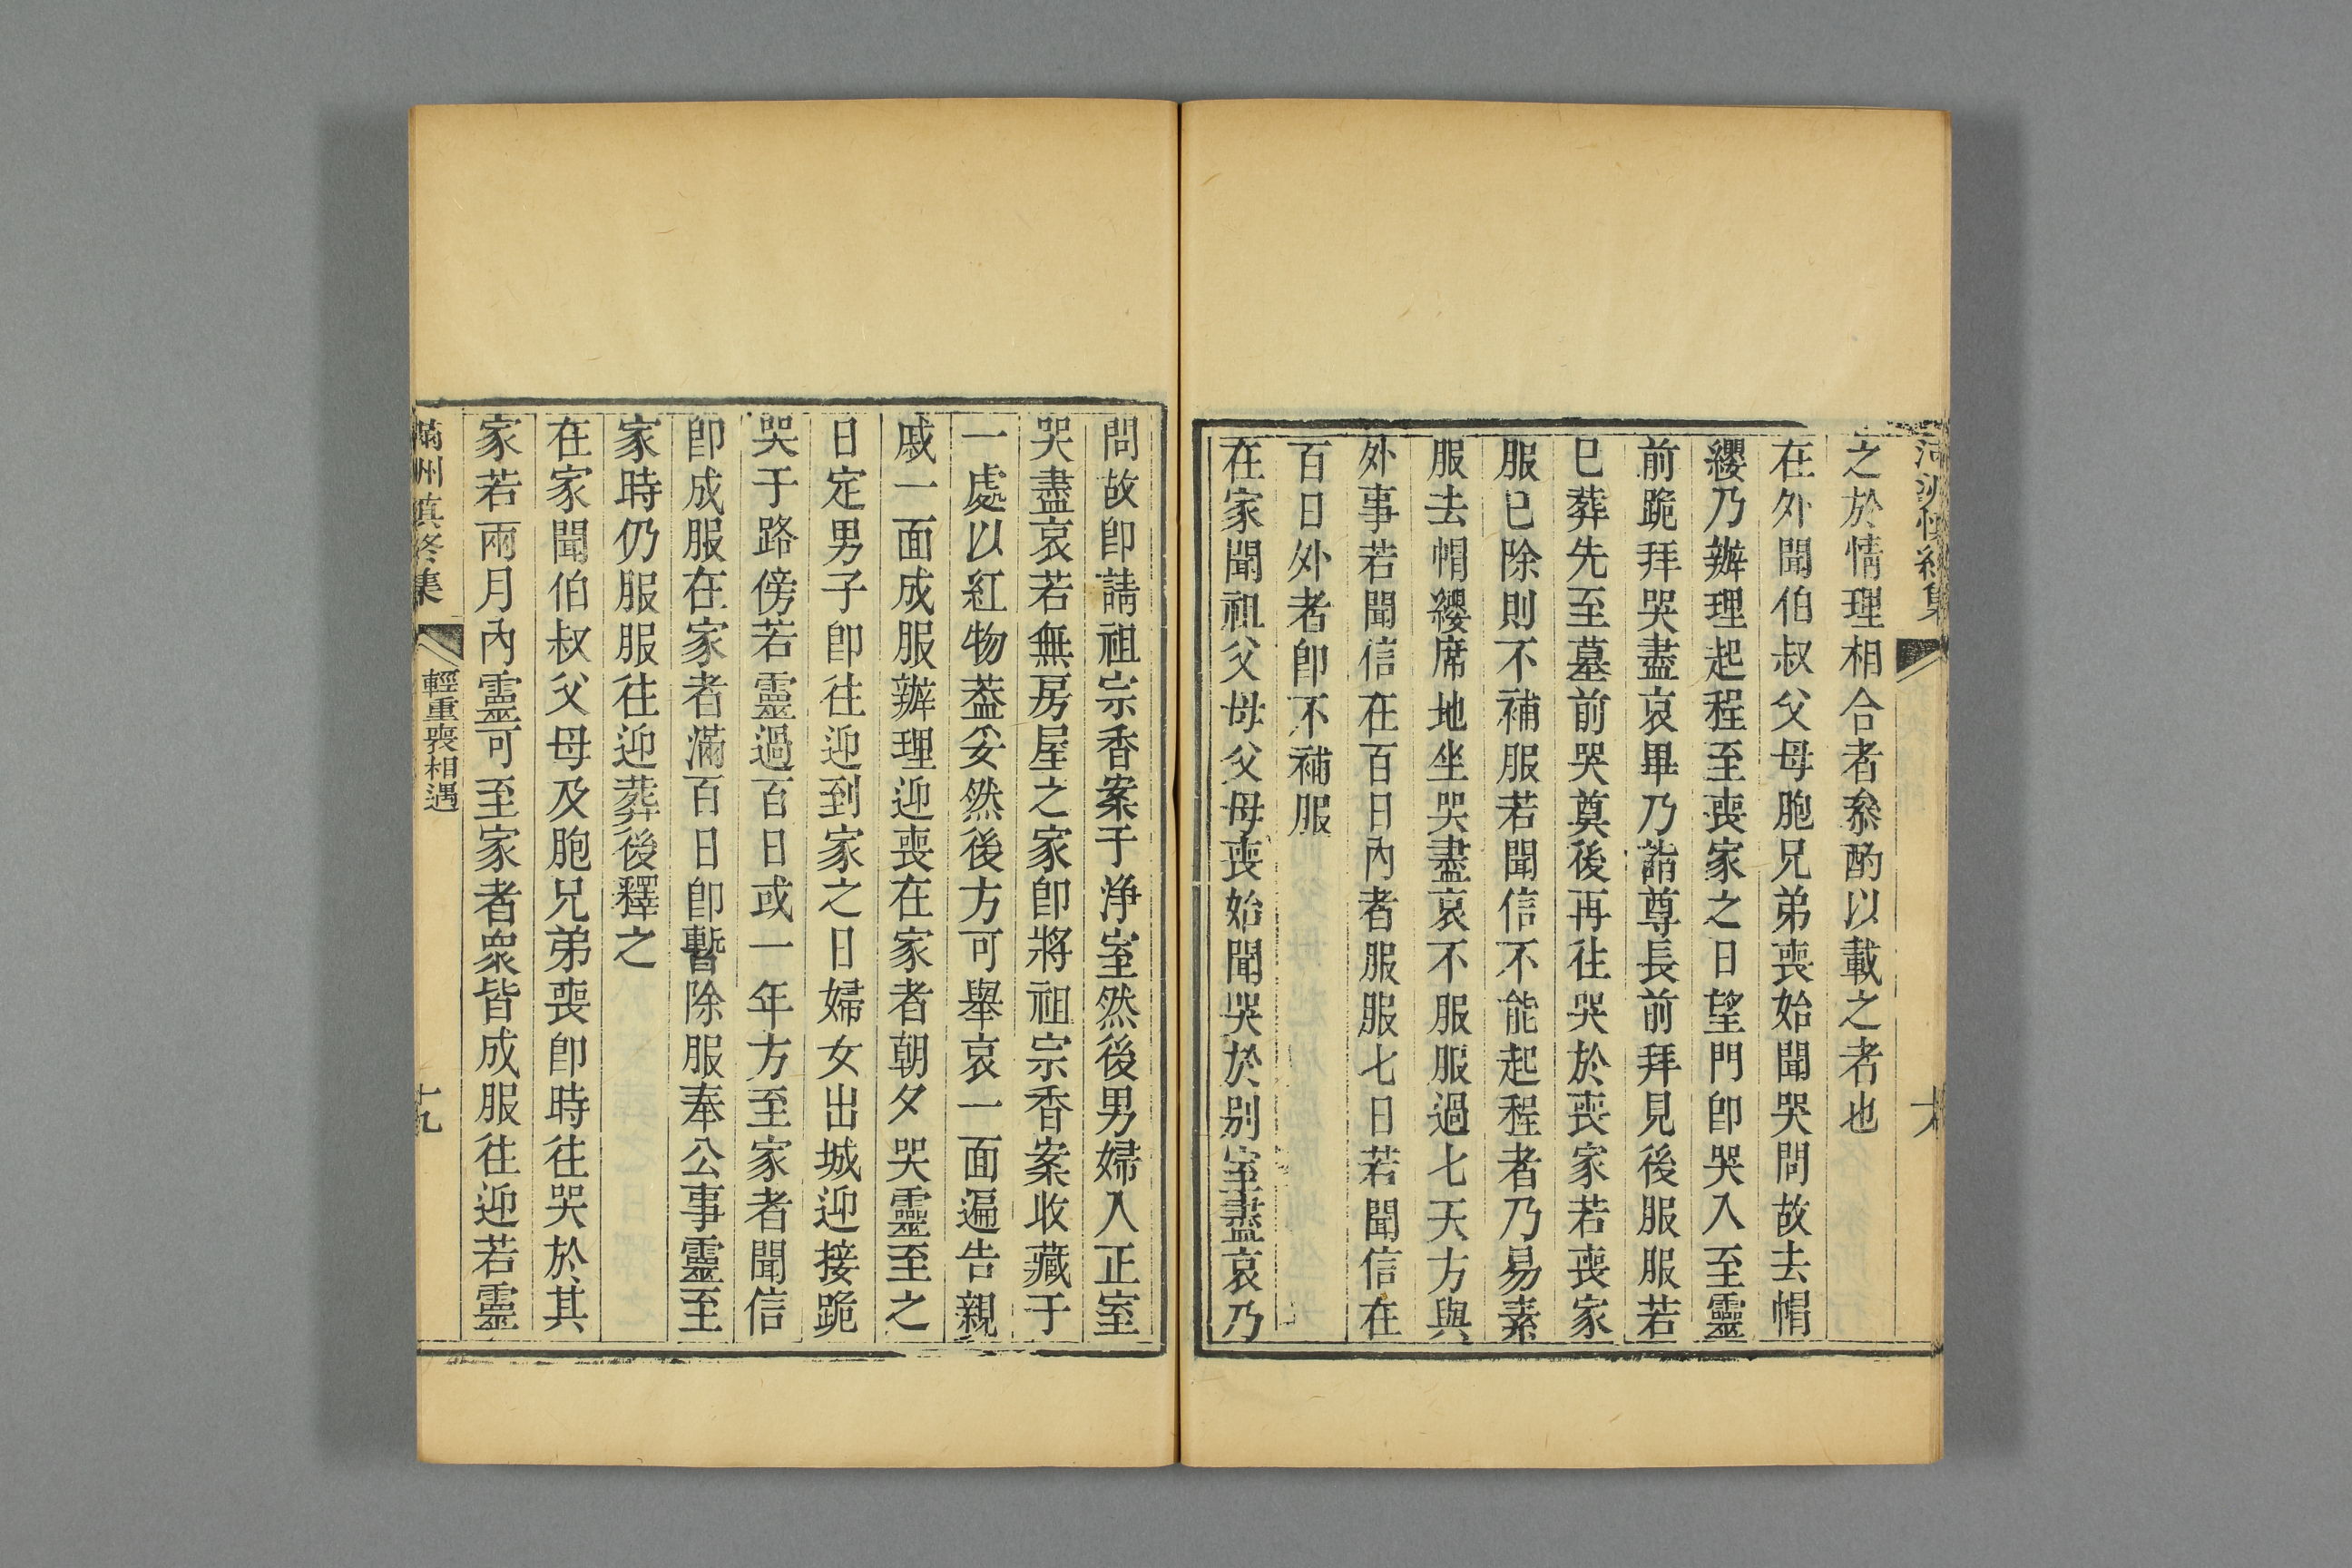 之於情理相合者叅酌以載之者也
在外聞伯叔父母胞兄弟喪始聞哭問故去帽
纓乃辦理起程至喪家之日望門卽哭入至靈
前跪拜哭盡哀畢乃詣尊長前拜見後服服若
已葬先至墓前哭奠後再往哭於喪家若喪家
服已除則不補服若聞信不能起程者乃易素
服去帽纓席地坐哭盡哀不服服過七天方與
外事若聞信在百日內者服服七日若聞信在
百日外者卽不補服
在家聞祖父母父母喪始聞哭於别室盡哀乃
問故卽請祖宗香案于净室然後男婦入正室
哭盡哀若無房屋之家卽將祖宗香案收藏于
一處以紅物葢妥然後方可舉哀一面遍告親
戚一面成服辦理迎喪在家者朝夕哭靈至之
日定男子卽往迎到家之日婦女出城迎接跪
哭于路傍若靈過百日或一年方至家者聞信
卽成服在家者滿百日卽暫除服奉公事靈至
家時仍服服往迎葬後釋之
在家聞伯叔父母及胞兄弟喪卽時往哭於其
家若兩月內靈可至家者衆皆成服往迎若靈
滿州慎終集
輕重喪相遇
十九